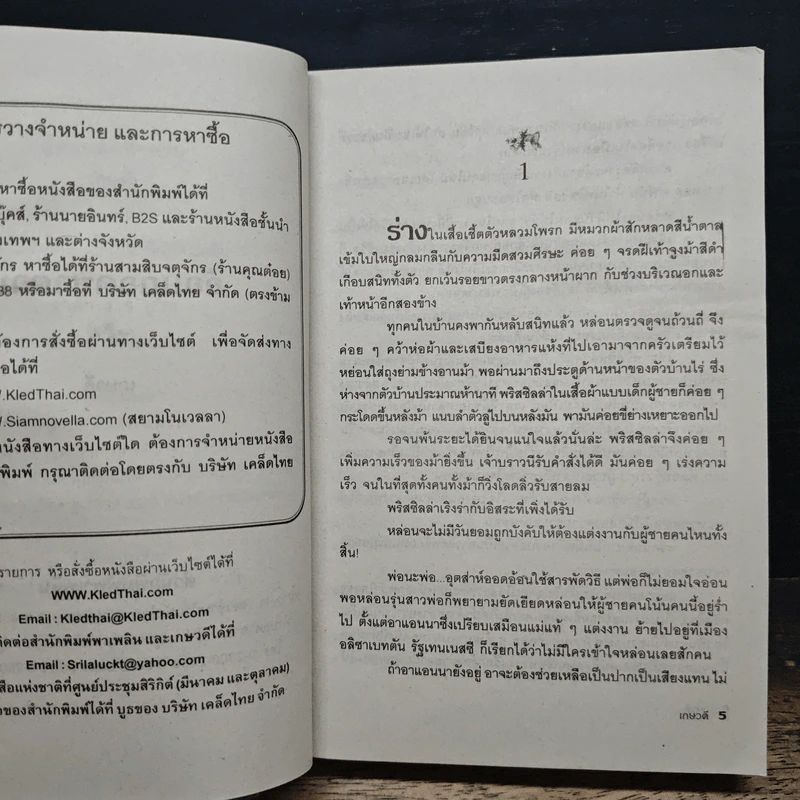 วางจำหน่าย และการหาซื้อ
หาซื้อหนังสือของสำนักพิมพ์ได้ที่
บุ๊คส์, ร้านนายอินทร์, B2S และร้านหนังสือชั้นนำ
งเทพฯ และต่างจังหวัด
จักร หาซื้อได้ที่ร้านสามสิบจตุจักร (ร้านคุณต๋อย)
88 หรือมาซื้อที่ บริษัท เคล็ดไทย จำกัด (ตรงข้าม
ต้องการสั่งซื้อผ่านทางเว็บไซต์ เพื่อจัดส่งทาง
อได้ที่
w.KledThai.com
w.Siamnovella.com (สยามโนเวลลา)
หนังสือทางเว็บไซต์ใด ต้องการจำหน่ายหนังสือ
พิมพ์ กรุณาติดต่อโดยตรงกับ บริษัท เคล็ดไทย
รายการ หรือสั่งซื้อหนังสือผ่านเว็บไซต์ได้ที่
WWW.KledThai.com
Email : Kledthai@KledThai.com
ติดต่อสำนักพิมพ์พาเพลิน และเกษวดีได้ที่
Email : Srilaluckt@yahoo.com
สือแห่งชาติที่ศูนย์ประชุมสิริกิติ์ (มีนาคม และตุลาคม)
ของสำนักพิมพ์ได้ที่ บูธของ บริษัท เคล็ดไทย จำกัด
1
ร่างในเสื้อเชิ้ตตัวหลวมโพรก มีหมวกผ้าสักหลาดสีน้ำตาล
เข้มใบใหญ่กลมกลืนกับความมืดสวมศีรษะ ค่อย ๆ จรดฝีเท้าจูงม้าสีดำ
เกือบสนิททั้งตัว ยกเว้นรอยขาวตรงกลางหน้าผาก กับช่วงบริเวณอกและ
เท้าหน้าอีกสองข้าง
ทุกคนในบ้านคงพากันหลับสนิทแล้ว หล่อนตรวจดูจนถ้วนถี่ จึง
ค่อย ๆ คว้าห่อผ้าและเสบียงอาหารแห้งที่ไปเอามาจากครัวเตรียมไว้
หย่อนใส่ถุงย่ามข้างอานม้า พอผ่านมาถึงประตูด้านหน้าของตัวบ้านไร่ ซึ่ง
ห่างจากตัวบ้านประมาณห้านาที พริสซิลล่าในเสื้อผ้าแบบเด็กผู้ชายก็ค่อย ๆ
กระโดดขึ้นหลังม้า แนบลำตัวลูไปบนหลังมัน พามันค่อยขี่ย่างเหยาะออกไป
รอจนพ้นระยะได้ยินจนแน่ใจแล้วนั่นล่ะ พริสซิลล่าจึงค่อย ๆ
เพิ่มความเร็วของม้ายิ่งขึ้น เจ้าบราวนีรับคำสั่งได้ดี มันค่อย ๆ เร่งความ
เร็ว จนในที่สุดทั้งคนทั้งม้าก็วิ่งโลดลิ่วรับสายลม
พริสซิลล่าเริงร่ากับอิสระที่เพิ่งได้รับ
หล่อนจะไม่มีวันยอมถูกบังคับให้ต้องแต่งงานกับผู้ชายคนไหนทั้ง
สิ้น!
พ่อนะพ่อ...อุตส่าห์ออดอ้อนใช้สารพัดวิธี แต่พ่อก็ไม่ยอมใจอ่อน
พอหล่อนรุ่นสาวพ่อก็พยายามยัดเยียดหล่อนให้ผู้ชายคนโน้นคนนี้อยู่ร่ำ
ไป ตั้งแต่อาแอนนาซึ่งเปรียบเสมือนแม่แท้ ๆ แต่งงาน ย้ายไปอยู่ที่เมือง
อลิซาเบทตัน รัฐเทนเนสซี ก็เรียกได้ว่าไม่มีใครเข้าใจหล่อนเลยสักคน
ถ้าอาแอนนายังอยู่ อาจะต้องช่วยเหลือเป็นปากเป็นเสียงแทน ไม่
เกษวดี 5